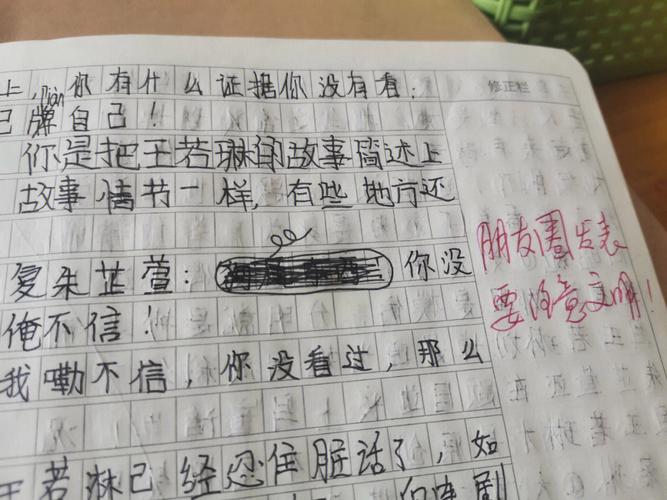 上，你有什么证据你没有看：
pián
己牌自己！
修正栏
你是把王若琳的故事简述上
故事情节一样，有些地方还
复朱芷萱：你没
俺不信！
我嘞不信，你没看过，那么
王若淋己经忍住脏话了，如
朋友圈发表
要注意文明！